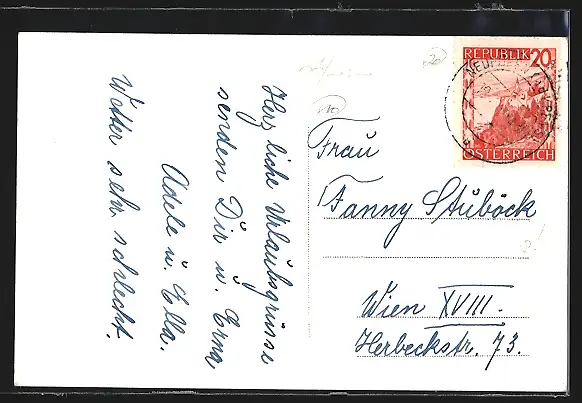 Herzliche Urlaubsgrüsse
senden Dir u. Erna
Adele u. Ella.
Wetter sehr schlecht.
REPUBLIK 20
ÖSTERREICH
Frau
Fanny Stuböck
Wien XVIII.
Herbeckstr. 73.